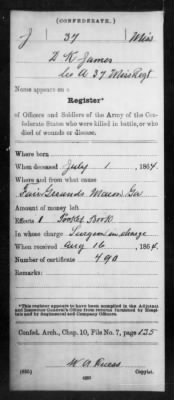 (CONFEDERATE.)
J 37 Miss
D K James
Co A 37 Miss Regt
Name appears on a
Register*
of Officers and Soldiers of the Army of the Con-
federate States who were killed in battle, or who
died of wounds or disease.
Where born
When deceased July 1, 1864
Where and from what cause
Fair Grounds Macon Ga
Amount of money left
Effects 1 Pocket Book
In whose charge Surgeon in charge
When received Aug 16, 1864.
Number of certificate 490
Remarks:
*This register appears to have been compiled in the Adjutant
and Inspector General's Office from returns furnished by Hospi-
tals and by Regimental and Company Officers.
Confed. Arch., Chap. 10, File No. 7, page 135
Copyist.